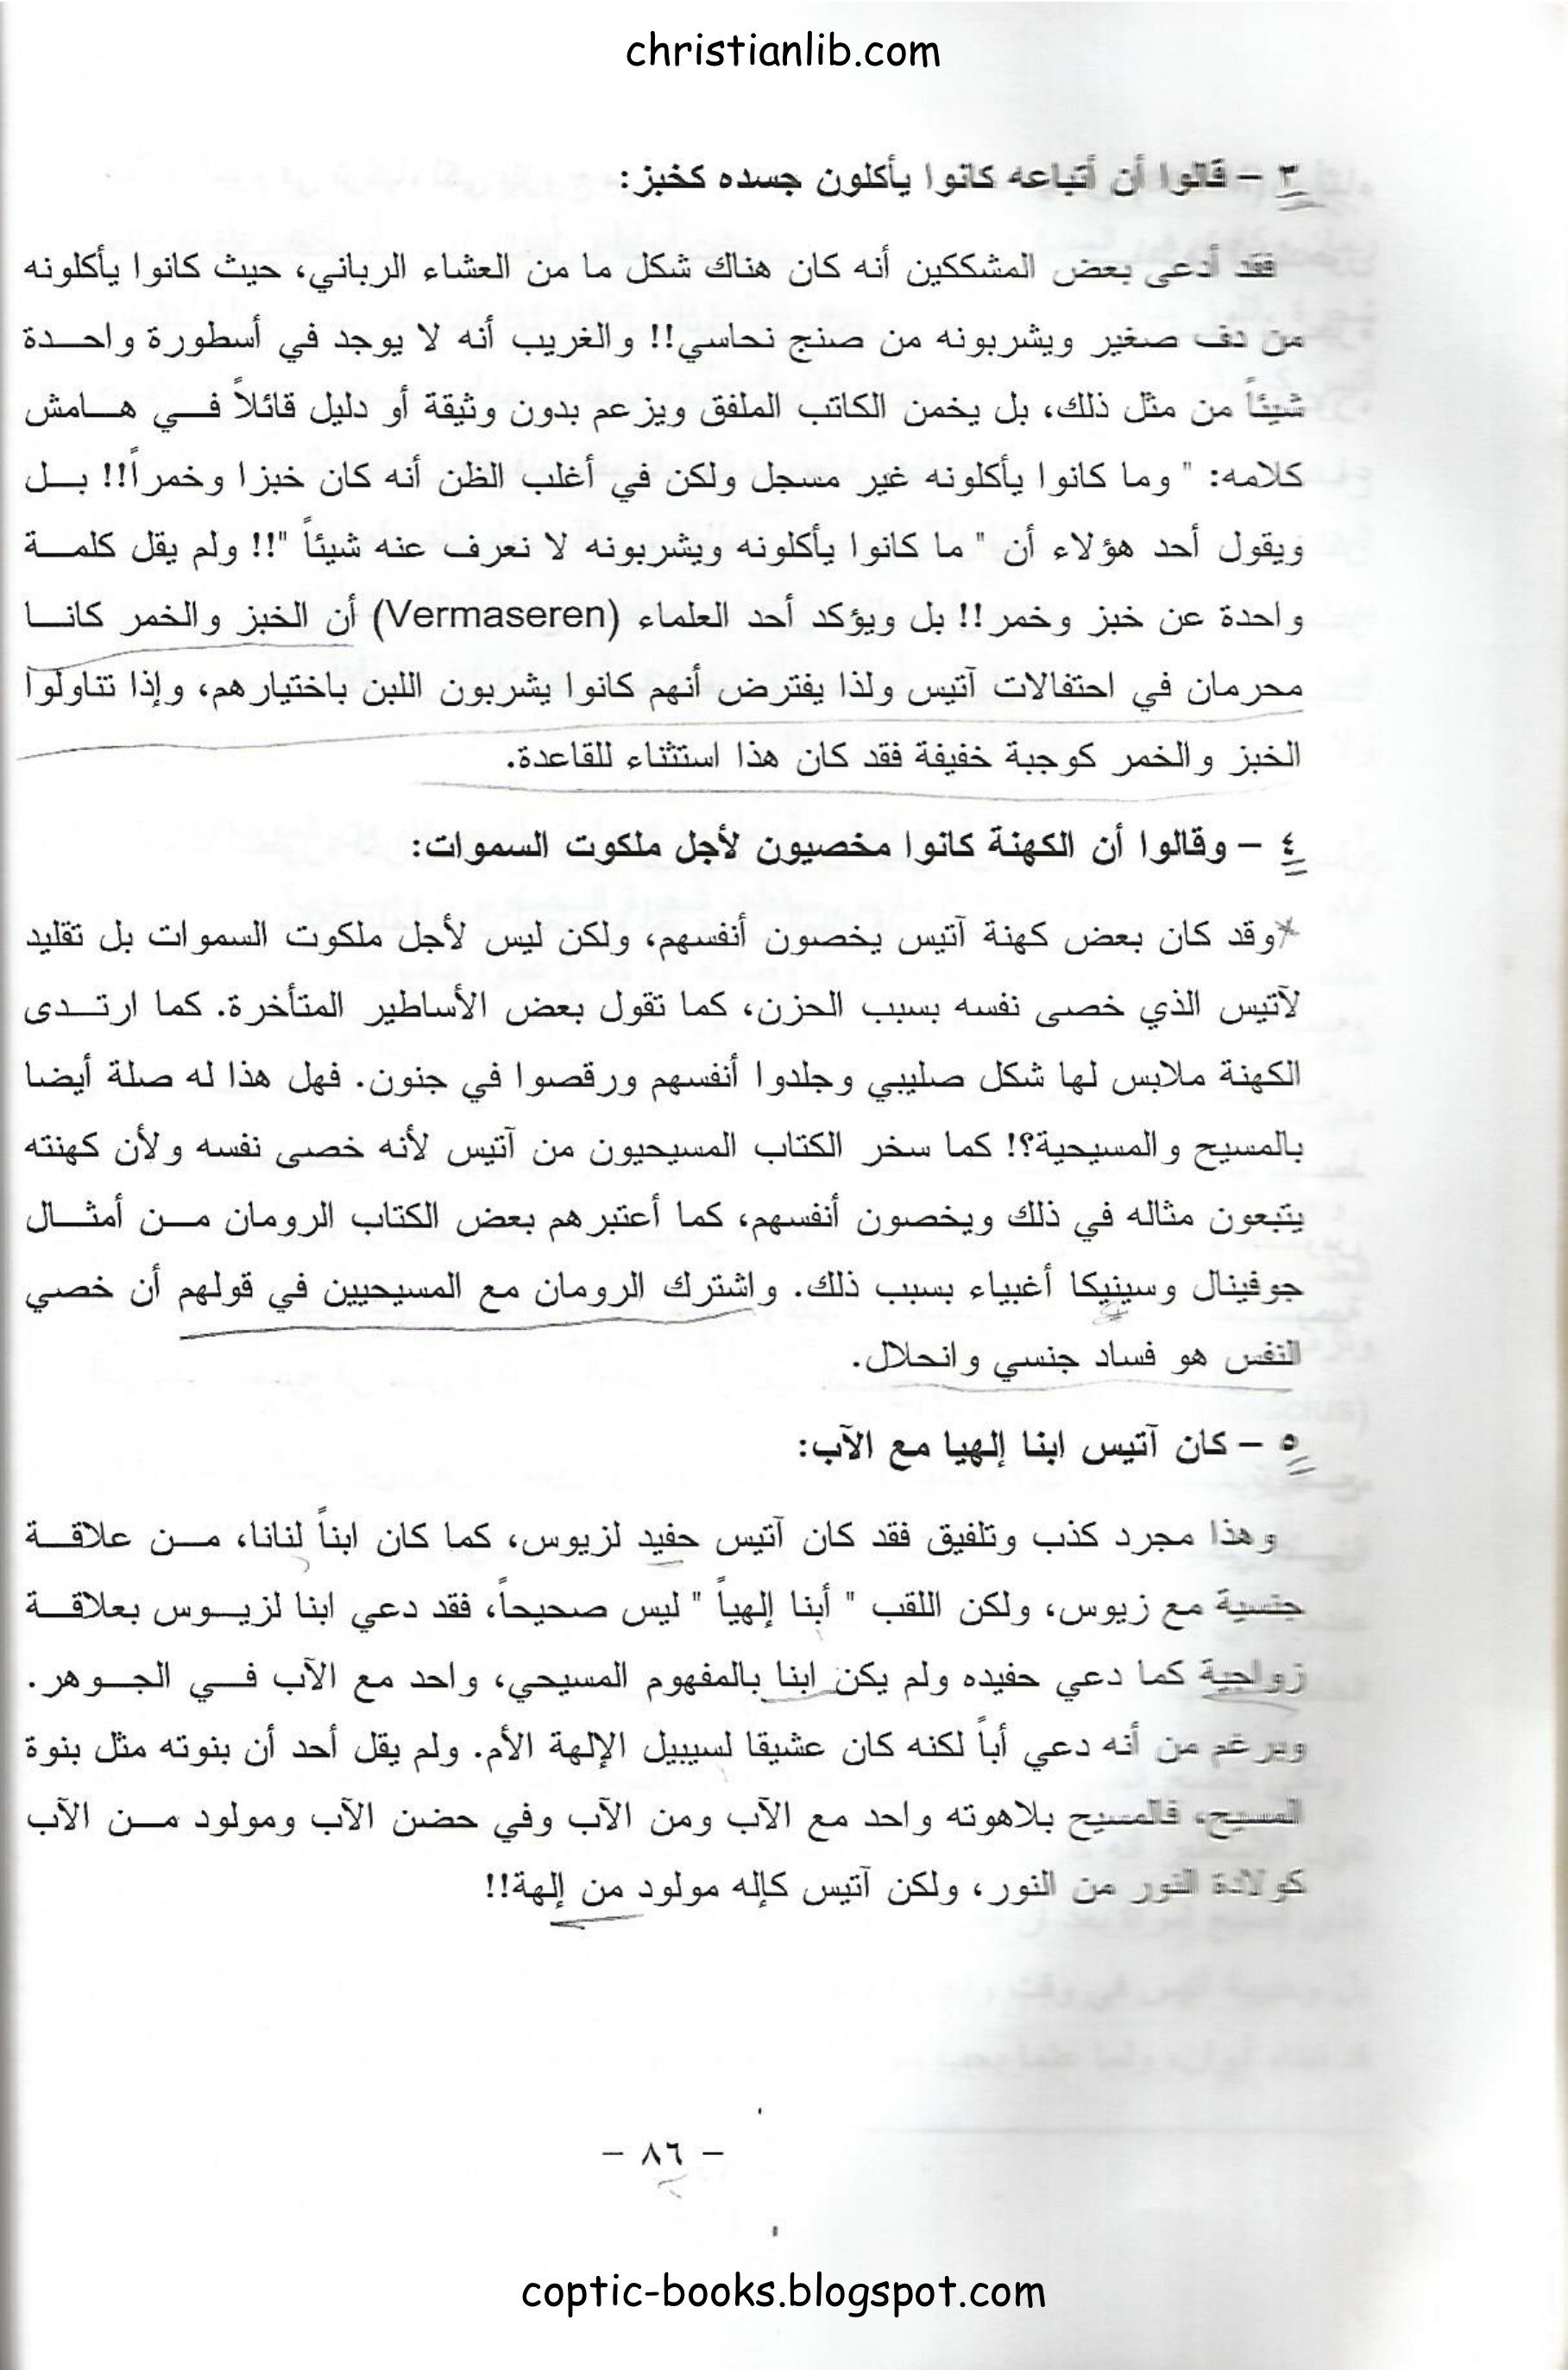 christianlib.com
٣ – قالوا أن أتباعه كانوا يأكلون جسده كخبز:
فقد أدعى بعض المشككين أنه كان هناك شكل ما من العشاء الرباني، حيث كانوا يأكلونه
من دف صغير ويشربونه من صنج نحاسي!! والغريب أنه لا يوجد في أسطورة واحدة
شيئاً من مثل ذلك، بل يخمن الكاتب الملفق ويزعم بدون وثيقة أو دليل قائلاً في هامش
كلامه: " وما كانوا يأكلونه غير مسجل ولكن في أغلب الظن أنه كان خبزا وخمراً!! بل
ويقول أحد هؤلاء أن " ما كانوا يأكلونه ويشربونه لا نعرف عنه شيئاً "!! ولم يقل كلمة
واحدة عن خبز وخمر!! بل ويؤكد أحد العلماء (Vermaseren) أن الخبز والخمر كانا
محرمان في احتفالات آتيس ولذا يفترض أنهم كانوا يشربون اللبن باختيارهم، وإذا تناولوا
الخبز والخمر كوجبة خفيفة فقد كان هذا استثناء للقاعدة.
٤ – وقالوا أن الكهنة كانوا مخصيون لأجل ملكوت السموات:
وقد كان بعض كهنة آتيس يخصون أنفسهم، ولكن ليس لأجل ملكوت السموات بل تقليد
لآتيس الذي خصى نفسه بسبب الحزن، كما تقول بعض الأساطير المتأخرة. كما ارتدى
الكهنة ملابس لها شكل صليبي وجلدوا أنفسهم ورقصوا في جنون. فهل هذا له صلة أيضا
بالمسيح والمسيحية؟! كما سخر الكتاب المسيحيون من آتيس لأنه خصى نفسه ولأن كهنته
يتبعون مثاله في ذلك ويخصون أنفسهم، كما أعتبرهم بعض الكتاب الرومان من أمثال
جوفينال وسينيكا أغبياء بسبب ذلك. واشترك الرومان مع المسيحيين في قولهم أن خصي
النفس هو فساد جنسي وانحلال.
٥ – كان آتيس ابنا إلهيا مع الآب:
وهذا مجرد كذب وتلفيق فقد كان آتيس حفيد لزيوس، كما كان ابناً لنانا، من علاقة
جنسية مع زيوس، ولكن اللقب " أبنا إلهياً " ليس صحيحاً، فقد دعي ابنا لزيوس بعلاقة
زواجية كما دعي حفيده ولم يكن ابنا بالمفهوم المسيحي، واحد مع الآب في الجوهر.
وبرغم من أنه دعي أباً لكنه كان عشيقا لسيبيل الإلهة الأم. ولم يقل أحد أن بنوته مثل بنوة
المسيح، فالمسيح بلاهوته واحد مع الآب ومن الآب وفي حضن الآب ومولود من الآب
كولادة النور من النور، ولكن آتيس كإله مولود من إلهة!!
– ٨٦ –
coptic-books.blogspot.com